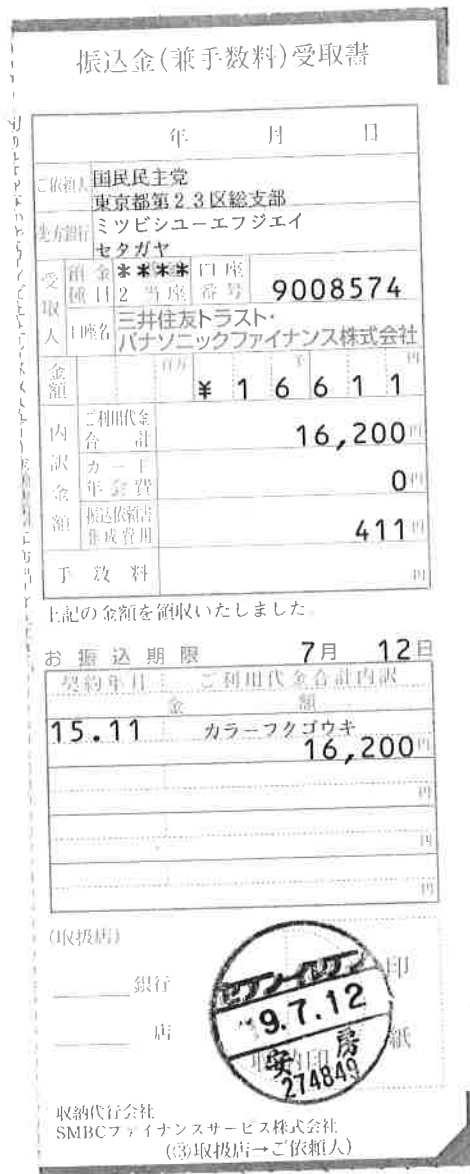 振込金(兼手数料)受取書
年 月 日
ご依頼人 国民民主党
東京都第23区総支部
先方銀行 ミツビシユーエフジエイ
セタガヤ
受取人 預金種目 ****
2 当座 口座番号 9008574
口座名 三井住友トラスト・
パナソニックファイナンス株式会社
金額 百万 千 円
¥16611
内訳金額 ご利用代金合計 16,200円
カード年会費 0円
振込依頼書作成費用 411円
手数料 円
上記の金額を領収いたしました
お振込期限 7月 12日
契約年月 ご利用代金合計内訳
金 額
15.11 カラーフクゴウキ
16,200円
円
円
円
(取扱店)
銀行
店
印
紙
セブン-イレブン
19.7.12
安房
274849
収納代行会社
SMBCファイナンスサービス株式会社
(③取扱店→ご依頼人)